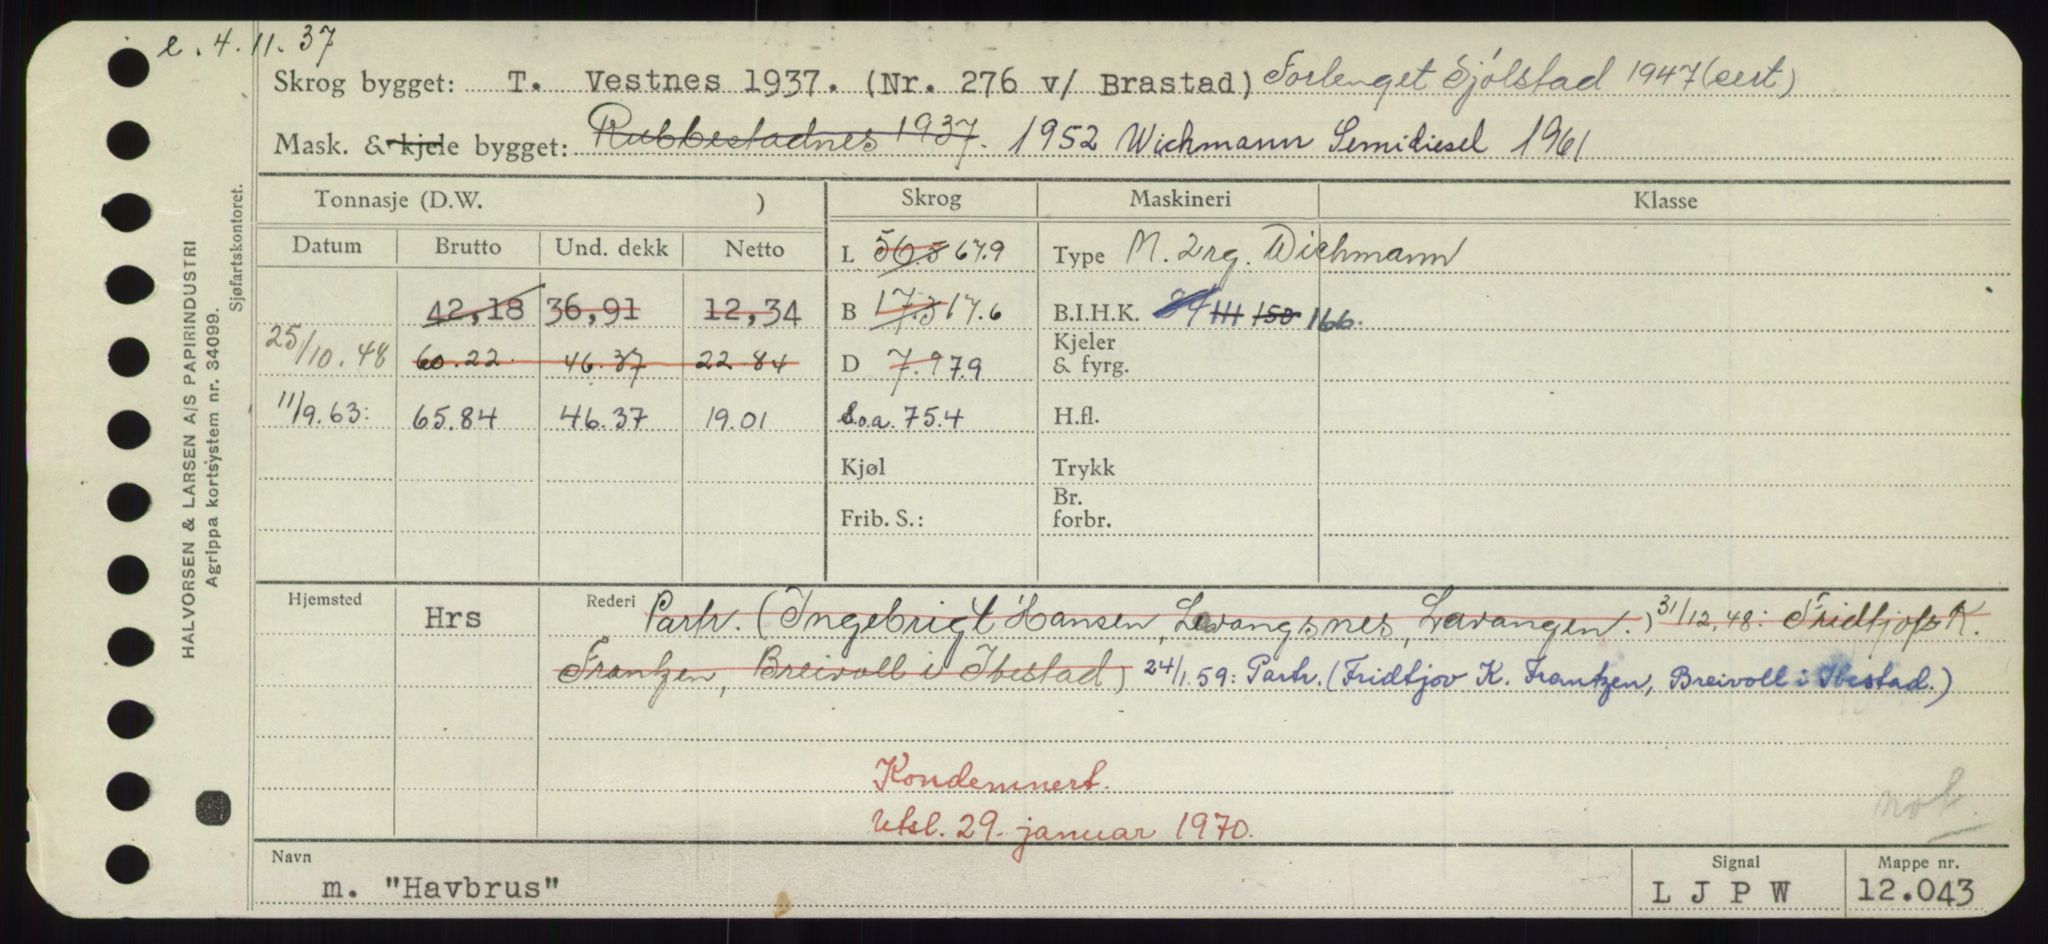 e. 4.11.37
Skrog bygget: T. Vestnes 1937. (Nr. 276 v/ Brastad) Forlenget Sjölstad 1947 (cert)
Mask. & kjele bygget: Rubbestadnes 1937. 1952 Wichmann Semidiesel 1961
Tonnasje (D.W. ) Skrog Maskineri Klasse
Datum Brutto Und. dekk Netto L 56.5 67.9 Type M. 2rg. Wichmann
42,18 36,91 12,34 B 17.3 17.6 B.I.H.K. 84 111 150 166.
25/10.48 60.22 46.37 22.84 D 7.9 7.9 Kjeler & fyrg.
11/9.63: 65.84 46.37 19.01 Loa. 75.4 H.fl.
Kjøl Trykk
Frib. S.: Br. forbr.
Hjemsted Hrs Rederi Partr. (Ingebrigt Hansen, Levangsnes, Lavangen.) 31/12.48: Fridtjof K.
Frantzen, Breivoll i Ibestad) 24/1.59: Partr. (Fridtjov K. Frantzen, Breivoll i Ibestad.)
Kondemnert.
Utsl. 29. januar 1970.
not.
Navn Signal Mappe nr.
m. "Havbrus" L J P W 12.043
HALVORSEN & LARSEN A/S PAPIRINDUSTRI
Agrippa kortsystem nr. 34099.
Sjøfartskontoret.